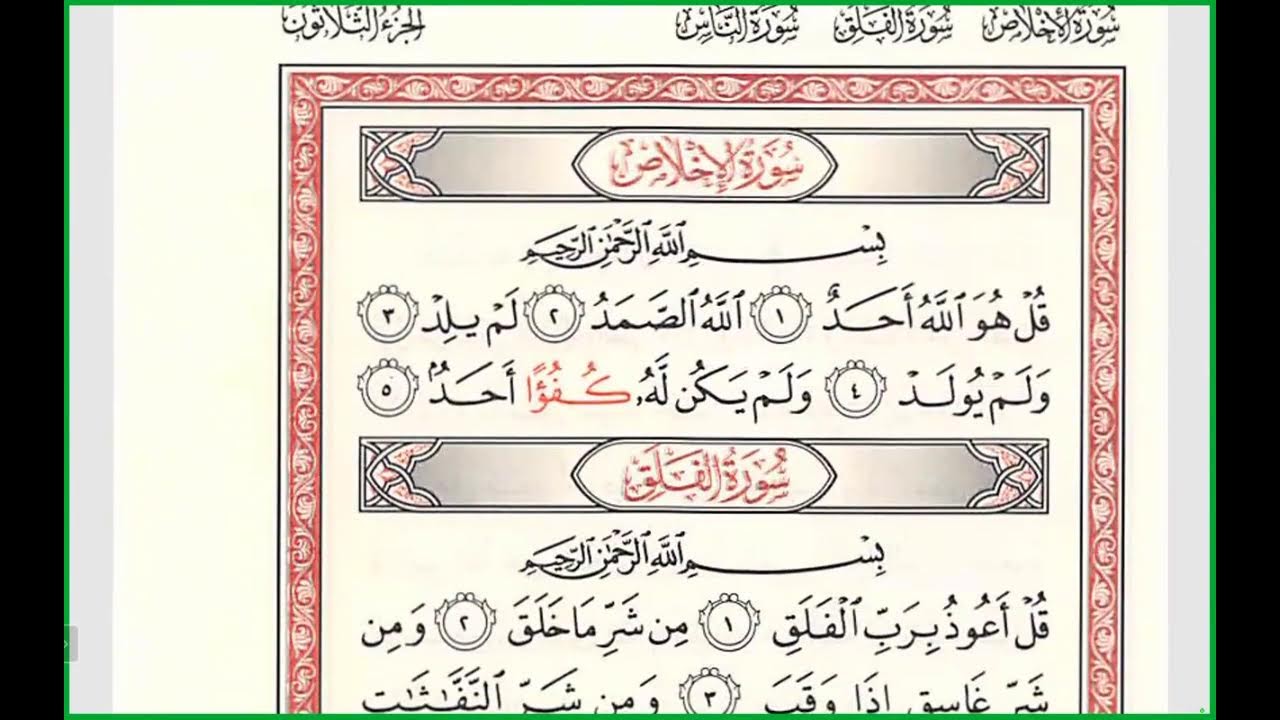 سُورَةُ الإِخْلَاصِ سُورَةُ الفَلَقِ سُورَةُ النَّاسِ الجزءُ الثَّلَاثُونَ
سُورَةُ الإِخْلَاصِ
بِسْمِ ٱللَّهِ ٱلرَّحْمَٰنِ ٱلرَّحِيمِ
قُلْ هُوَ ٱللَّهُ أَحَدٌ ١ ٱللَّهُ ٱلصَّمَدُ ٢ لَمْ يَلِدْ ٣
وَلَمْ يُولَدْ ٤ وَلَمْ يَكُن لَّهُۥ كُفُؤًا أَحَدٌۢ ٥
سُورَةُ الفَلَقِ
بِسْمِ ٱللَّهِ ٱلرَّحْمَٰنِ ٱلرَّحِيمِ
قُلْ أَعُوذُ بِرَبِّ ٱلْفَلَقِ ١ مِن شَرِّ مَا خَلَقَ ٢ وَمِن
شَرِّ غَاسِقٍ إِذَا وَقَبَ ٣ وَمِن شَرِّ ٱلنَّفَّٰثَٰتِ